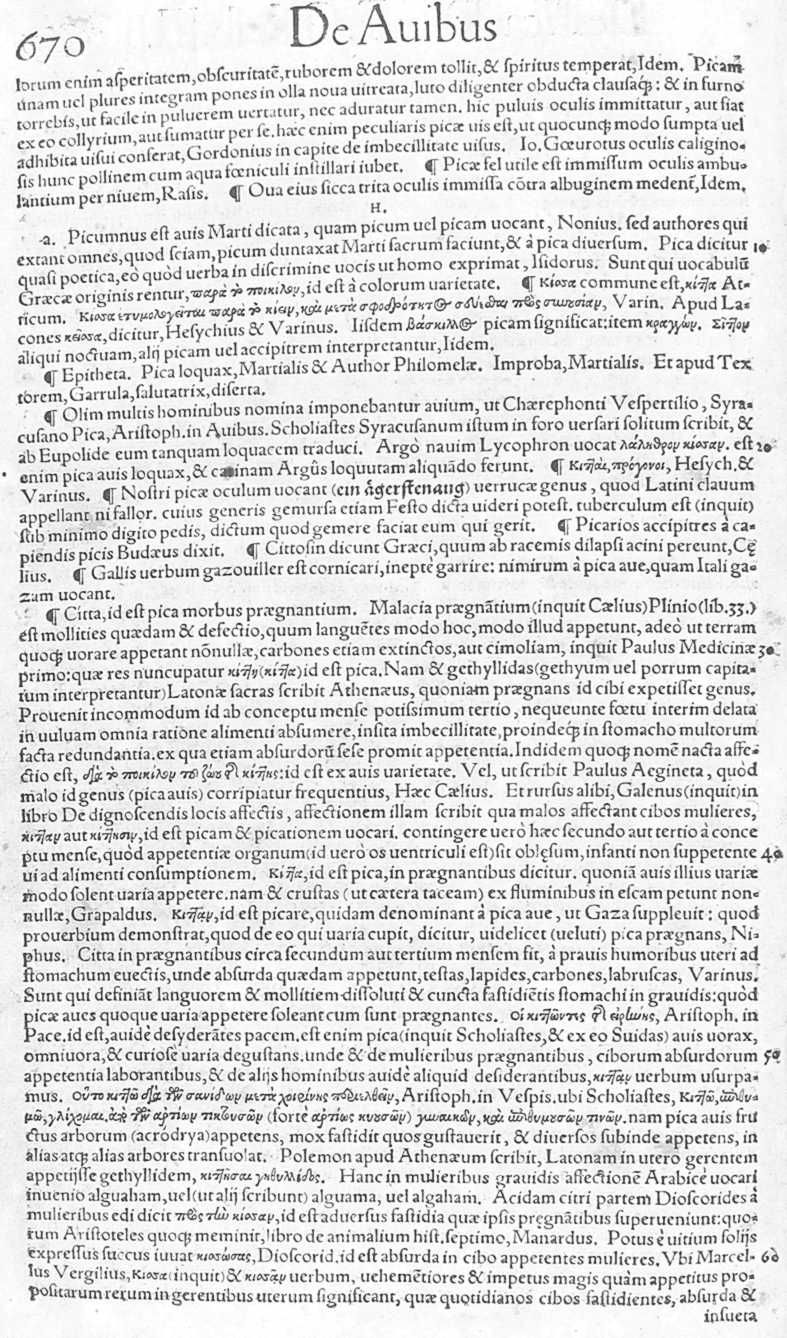 670
De Auibus
lorum enim asperitatem, obscuritatē, ruborem & dolorem tollit, & spiritus temperat, Idem. Picam
unam uel plures integram pones in olla noua uitreata, luto diligenter obducta clausaq́;: & in furno
torrebis, ut facile in puluerem uertatur, nec aduratur tamen. hic puluis oculis immittatur, aut fiat
ex eo collyrium, aut sumatur per se. hæc enim peculiaris picæ uis est, ut quocunq; modo sumpta uel
adhibita uisui conferat, Gordonius in capite de imbecillitate uisus. Io. Gœurotus oculis caligino-
sis hunc pollinem cum aqua fœniculi instillari iubet. ¶ Picæ fel utile est immissum oculis ambu-
lantium per niuem, Rasis. ¶ Oua eius sicca trita oculis immissa cōtra albuginem medent̃, Idem.
H.
a. Picumnus est auis Marti dicata, quam picum uel picam uocant, Nonius. sed authores qui
extant omnes, quod sciam, picum duntaxat Marti sacrum faciunt, & à pica diuersum. Pica dicitur 10
quasi poetica, eò quòd uerba in discrimine uocis ut homo exprimat, Isidorus. Sunt qui uocabulū
Græcæ originis rentur, παρὰ τὸ ποικίλον, id est à colorum uarietate. ¶ Κίοσα commune est, κίτ̃α At-
ticum. Κίοσα ἐτυμολογεῖται παρὰ τὸ κίειν, καὶ μετὰ σφοδρότητος πρὸς συνουσίαν, Varin. Apud La-
cones κεῖοσα, dicitur, Hesychius & Varinus. Iisdem βάσκιλλος picam significat: item κραγγών.
aliqui noctuam, alij picam uel accipitrem interpretantur, Iidem.
¶ Epitheta. Pica loquax, Martialis & Author Philomelæ. Improba, Martialis. Et apud Tex
torem, Garrula, salutatrix, diserta.
¶ Olim multis hominibus nomina imponebantur auium, ut Chærephonti Vespertilio, Syra-
cusano Pica, Aristoph. in Auibus. Scholiastes Syracusanum istum in foro uersari solitum scribit, &
ab Eupolide eum tanquam loquacem traduci. Argò nauim Lycophron uocat λάληθρον κίοσαν. est 20
enim pica auis loquax, & carinam Argûs loquutam aliquādo ferunt. ¶ Κιτ̃αι, πρόγονοι, Hesych. &
Varinus. ¶ Nostri picæ oculum uocant (ein ågerstenaug) uerrucæ genus, quod Latini clauum
appellant ni fallor. cuius generis gemursa etiam Festo dicta uideri potest. tuberculum est (inquit)
sub minimo digito pedis, dictum quod gemere faciat eum qui gerit. ¶ Picarios accipitres à ca-
piendis picis Budæus dixit. ¶ Cittosin dicunt Græci, quum ab racemis dilapsi acini pereunt, Cę
lius. ¶ Gallis uerbum gazouiller est cornicari, ineptè garrire: nimirum à pica aue, quam Itali ga-
zam uocant.
¶ Citta, id est pica morbus prægnantium. Malacia prægnātium (inquit Cælius) Plinio (lib. 33.)
est mollities quædam & defectio, quum languētes modo hoc, modo illud appetunt, adeò ut terram
quoq; uorare appetant nōnullæ, carbones etiam extinctos, aut cimoliam, inquit Paulus Medicinæ 30
primo: quæ res nuncupatur κίτ̃ην (κίτ̃α) id est pica. Nam & gethyllidas (gethyum uel porrum capita-
tum interpretantur) Latonæ sacras scribit Athenæus, quoniam prægnans id cibi expetisset genus.
Prouenit incommodum id ab conceptu mense potissimum tertio, nequeunte fœtu interim delata
in uuluam omnia ratione alimenti absumere, insita imbecillitate, proindeq; in stomacho multorum
facta redundantia. ex qua etiam absurdorū sese promit appetentia. Indidem quoq; nomē nacta affe-
ctio est, διὰ τὸ ποικίλον τοῦ ζώου τῆς κίτ̃ης: id est ex auis uarietate. Vel, ut scribit Paulus Aegineta, quòd
malo id genus (pica auis) corripiatur frequentius, Hæc Cælius. Et rursus alibi, Galenus (inquit) in
libro De dignoscendis locis affectis, affectionem illam scribit qua malos affectant cibos mulieres,
κίτ̃αν aut κίτ̃ησιν, id est picam & picationem uocari. contingere uerò hæc secundo aut tertio à conce
ptu mense, quòd appetentiæ organum (id uerò os uentriculi est) sit oblęsum, infanti non suppetente 40
ui ad alimenti consumptionem. Κίτ̃α, id est pica, in prægnantibus dicitur. quoniā auis illius uariæ
modo solent uaria appetere. nam & crustas (ut cætera taceam) ex fluminibus in escam petunt non-
nullæ, Grapaldus. Κιτ̃ᾷν, id est picare, quidam denominant à pica aue, ut Gaza suppleuit: quod
prouerbium demonstrat, quod de eo qui uaria cupit, dicitur, uidelicet (ueluti) pica prægnans, Ni-
phus. Citta in prægnantibus circa secundum aut tertium mensem fit, à prauis humoribus uteri ad
stomachum euectis, unde absurda quædam appetunt, testas, lapides, carbones, labruscas, Varinus.
Sunt qui definiāt languorem & mollitiem dissoluti & cuncta fastidiētis stomachi in grauidis: quòd
picæ aues quoque uaria appetere soleant cum sunt prægnantes. Οἱ κιτ̃ῶντες τῆς εἰρήνης, Aristoph. in
Pace. id est, auidè desyderātes pacem. est enim pica (inquit Scholiastes, & ex eo Suidas) auis uorax,
omniuora, & curiosè uaria degustans. unde & de mulieribus prægnantibus, ciborum absurdorum 50
appetentia laborantibus, & de alijs hominibus auidè aliquid desiderantibus, κιτ̃ᾷν uerbum usurpa-
mus. Οὕτω κιτ̃ῶ διὰ τῶν σανίδων μετὰ χοιρίνης περιελθεῖν, Aristoph. in Vespis. ubi Scholiastes, Κιτ̃ῶ, ἐπιθυ-
μῶ, γλίχομαι. ἀπὸ τῶν ἀρτίων τικτουσῶν (fortè ἀρτίως κυουσῶν) γυναικῶν, καὶ ἐπιθυμουσῶν τινῶν. nam pica auis fru
ctus arborum (acrodrya) appetens, mox fastidit quos gustauerit, & diuersos subinde appetens, in
alias atq; alias arbores transuolat. Polemon apud Athenæum scribit, Latonam in utero gerentem
appetijsse gethyllidem, κιτ̃ῆσαι γηθυλλίδος. Hanc in mulieribus grauidis affectionē Arabicè uocari
inuenio alguaham, uel (ut alij scribunt) alguama, uel algaham. Acidam citri partem Dioscorides à
mulieribus edi dicit πρὸς τὴν κίοσαν, id est aduersus fastidia quæ ipsis pręgnātibus superueniunt: quo-
rum Aristoteles quoq; meminit, libro de animalium hist. septimo, Manardus. Potus è uitium folijs
expressus succus iuuat κιοσώσας, Dioscorid. id est absurda in cibo appetentes mulieres. Vbi Marcel- 60
lus Vergilius, Κίοσα (inquit) & κιοσᾷν uerbum, uehemētiores & impetus magis quàm appetitus pro-
positarum rerum in gerentibus uterum significant, quæ quotidianos cibos fastidientes, absurda &
insueta